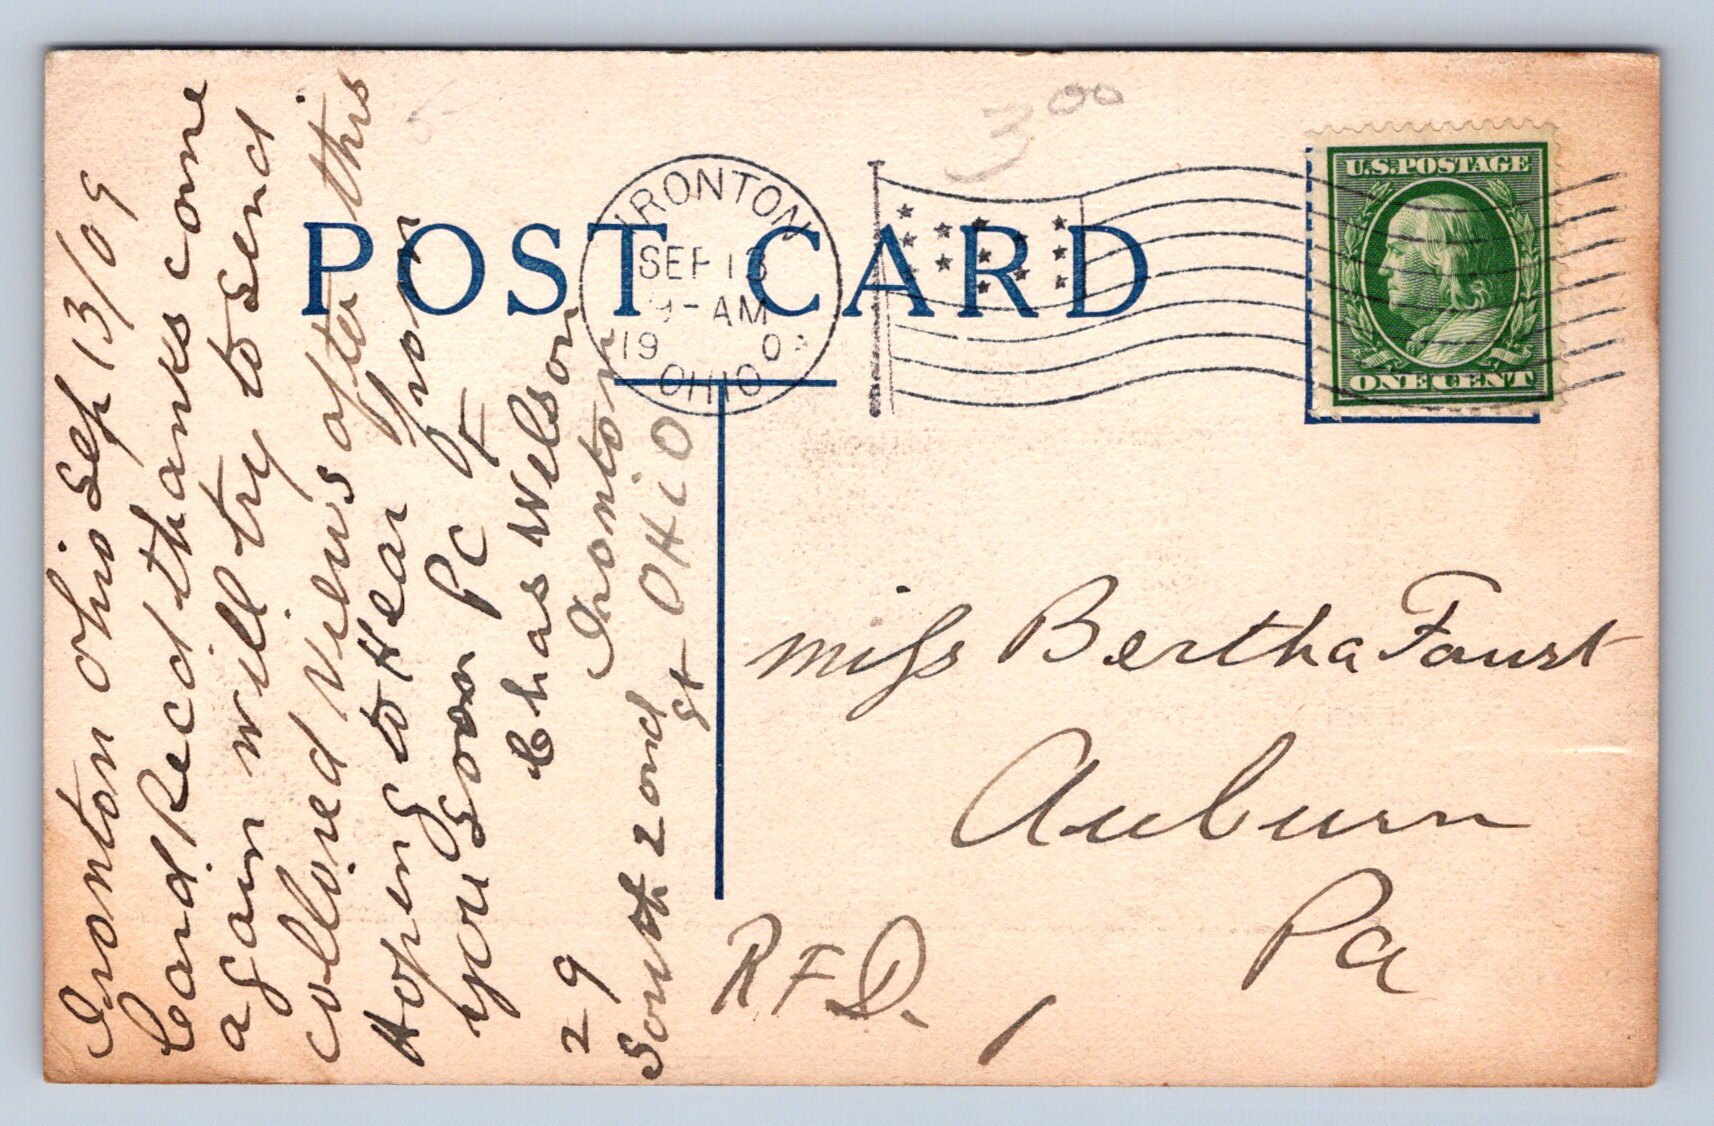 POST CARD
IRONTON
SEP 13
9-AM
19 0
OHIO
U.S. POSTAGE
ONE CENT
300
Ironton Ohio Sep 13/09
Card Recd thanks come
again will try to send
collored views after this
Hoping to Hear from
you soon PC F
Chas Wilson
29 Ironton
South 2ond st OHiO
Miss Bertha Faust
Auburn
Pa
R F D. 1